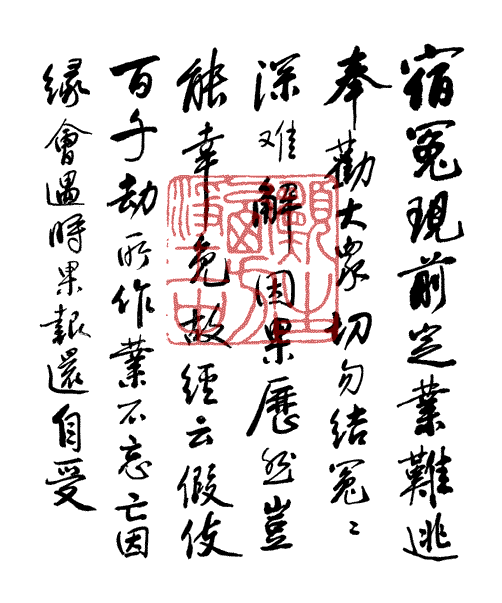 宿冤現前定業難逃
奉勸大衆切勿結冤〻
深难解因果歷然豈
能幸免故經云假使
百千劫所作業不忘亡因
緣會遇時果報還自受
願生
西方
淨土